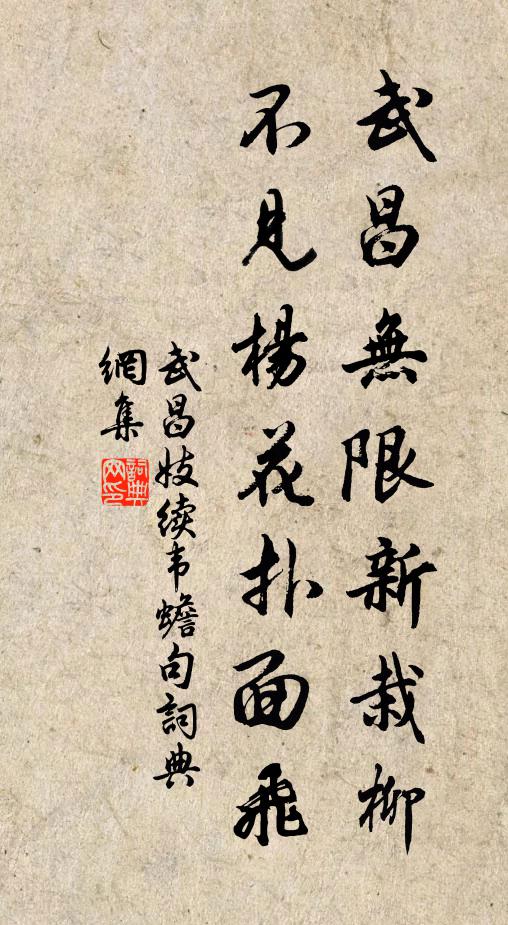 武昌無限新栽柳
不見楊花扑面飛
武昌妓续韦蟾句詞典
網集
詞典
网印